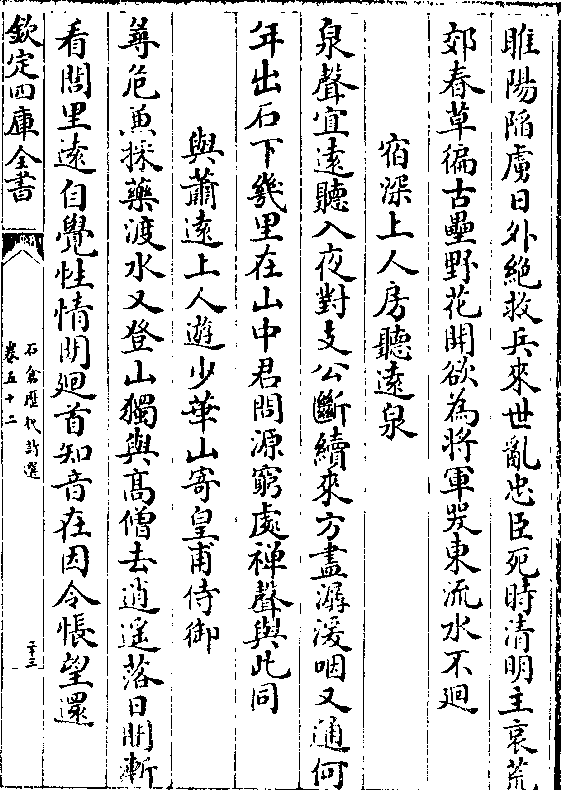 睢陽陥虜日外絶救兵來世亂忠臣死時清明主哀荒
郊春草徧古壘野花開欲為將軍哭東流水不廻
宿深上人房聽遠泉
泉聲宜遠聽入夜對支公斷續來方盡潺湲咽又通何
年出石下幾里在山中君問源窮處禅聲與此同
與蕭遠上人遊少華山寄皇甫侍御
尋危兼採藥渡水又登山獨與髙僧去逍遥落日閒漸
看閭里遠自覺性情閒廻首知音在因令悵望還
欽定四庫全書
石倉歷代詩選
卷五十二
二十三